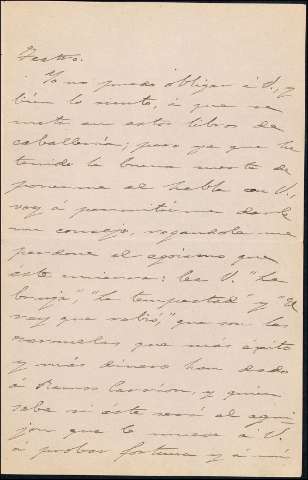 Teatro.
Yo no puedo obligar á V., y
bien lo siento, á que se
meta en estos libros de
caballería; pero ya que he
tenido la buena suerte de
ponerme al habla con V.,
voy á permitirme darle
un consejo, rogándole me
perdone el egoismo que
este envuelve: lea V. "La
bruja", "La tempestad" y "El
rey que rabió", que son las
zarzuelas que más éxito
y más dinero han dado
á Ramos Carrión, y quién
sabe si este será el agui
jón que le mueva á V.
á probar fortuna y á mi